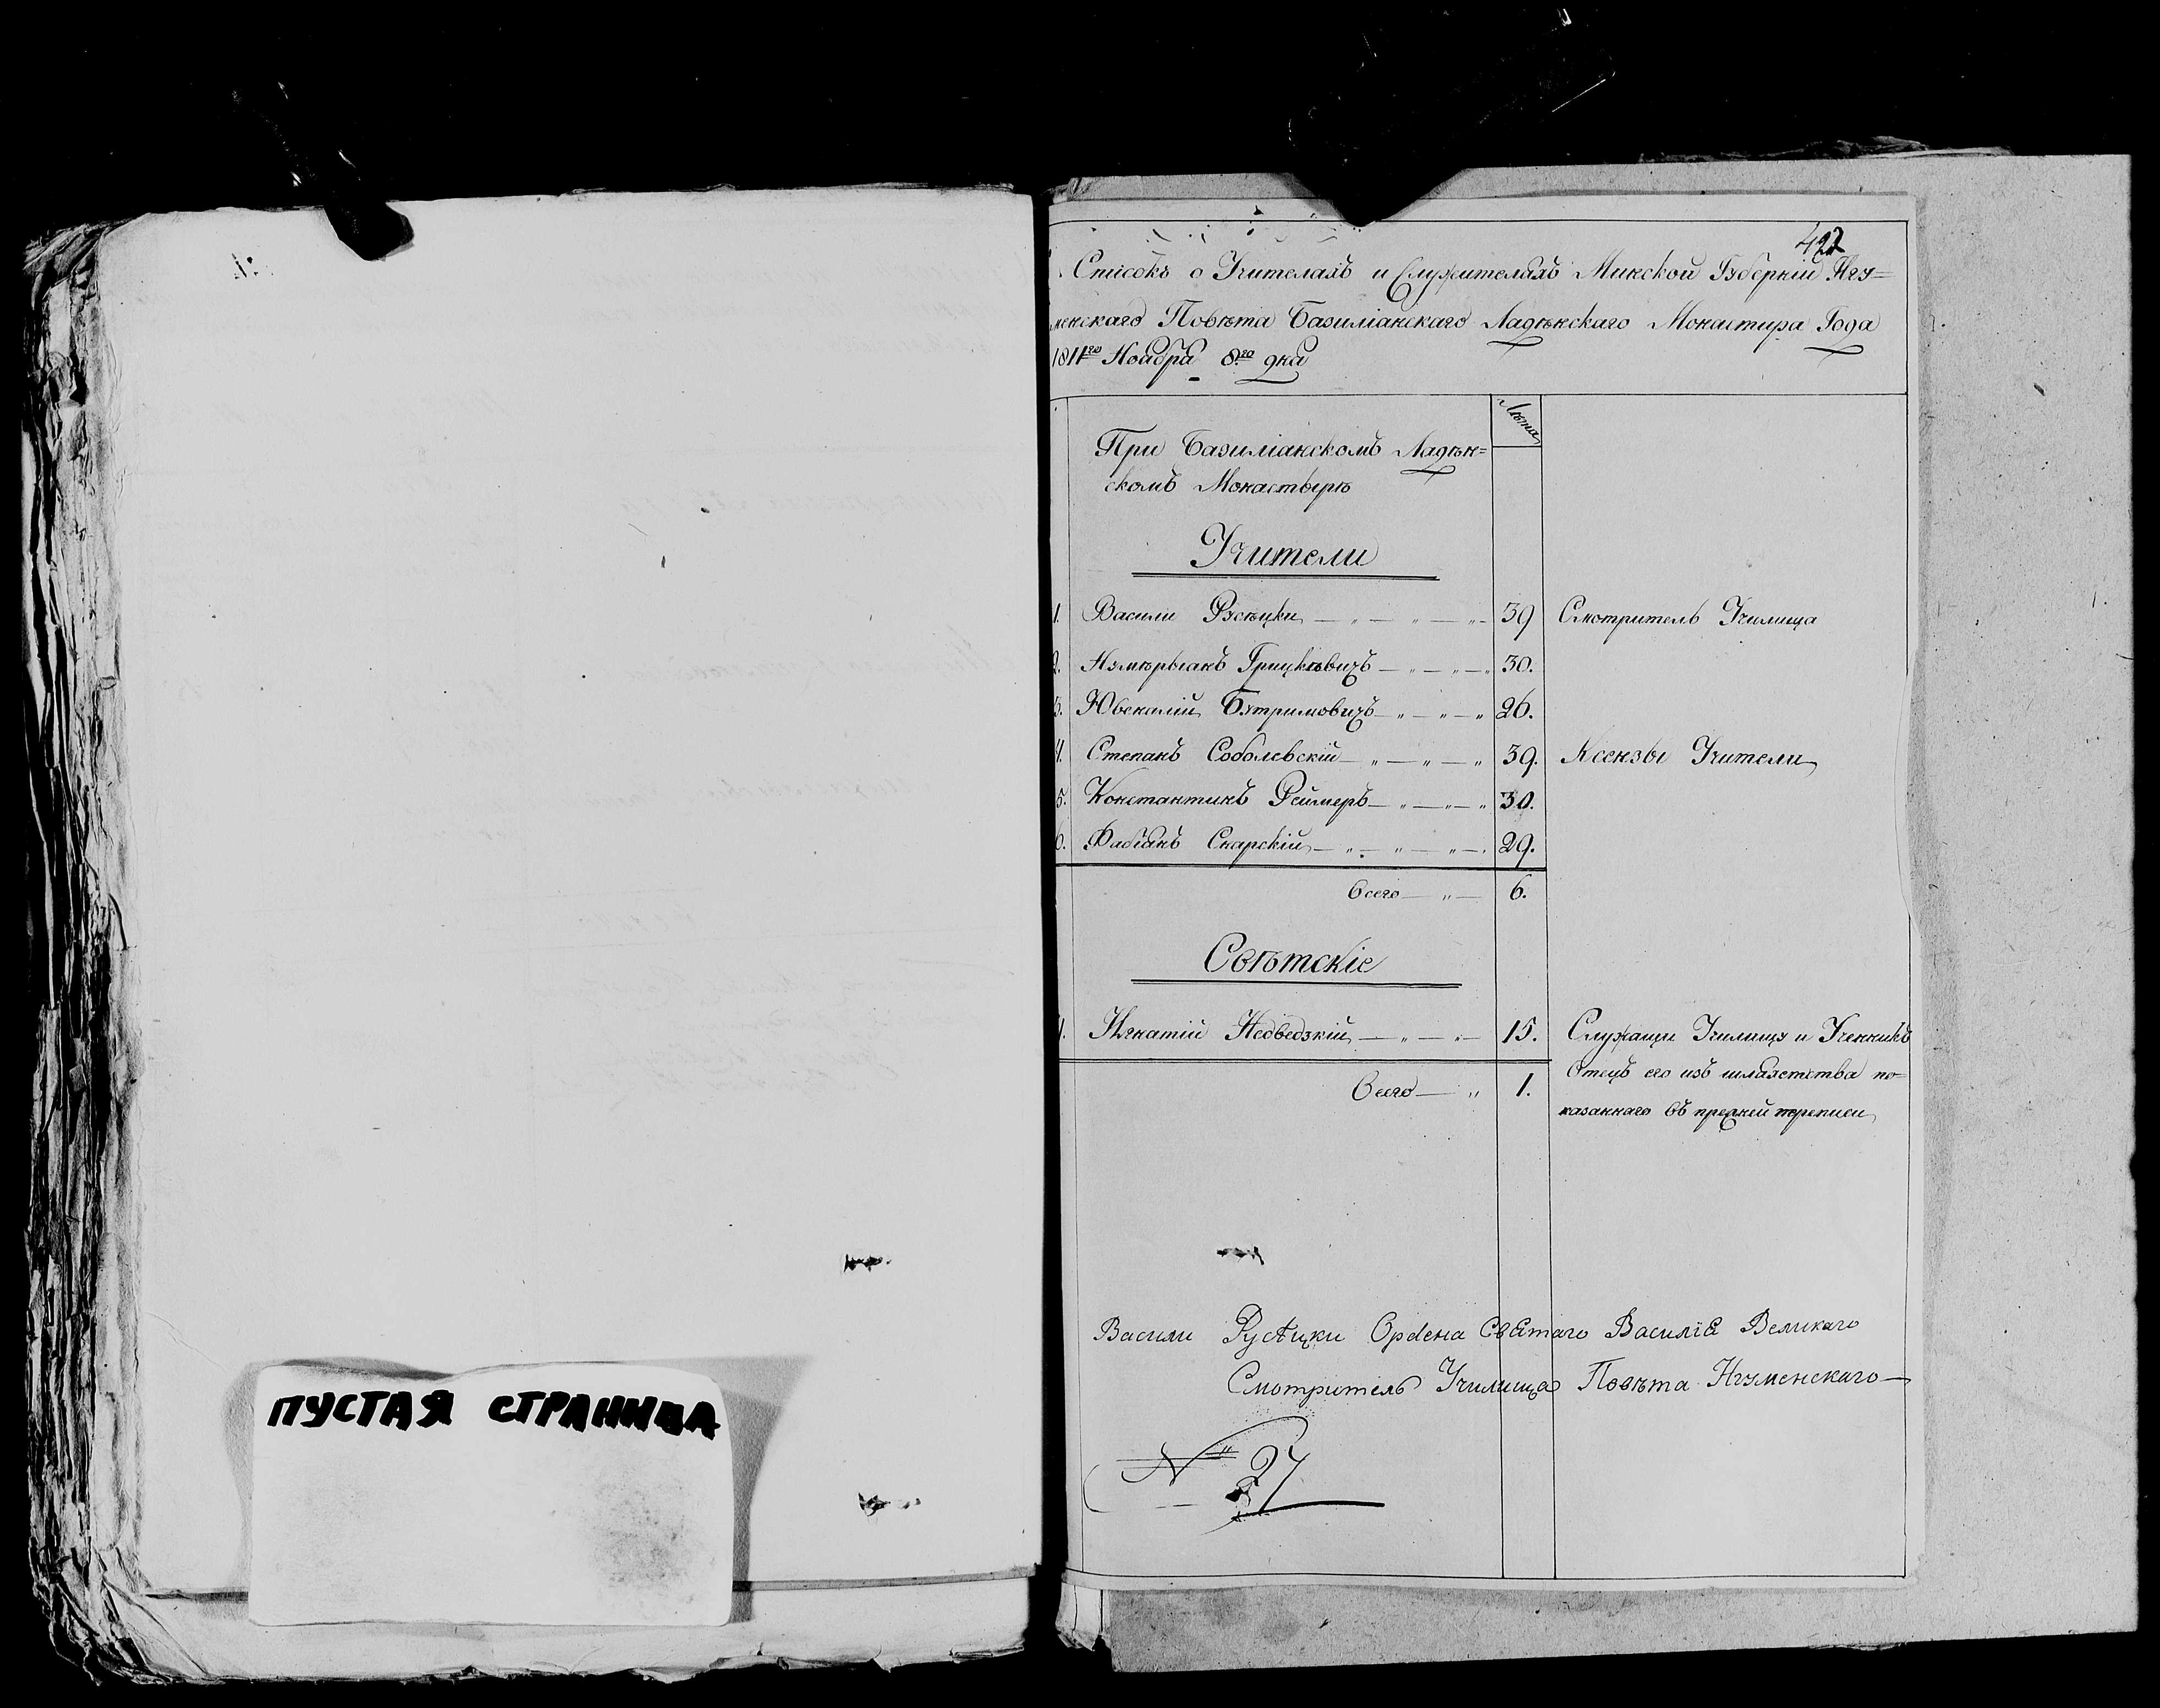 ПУСТАЯ СТРАНИЦА
422
Списокъ о Учителахъ и Служителяхъ Минской Губерніи Игу=
менскаго Повѣта Базиліанскаго Лядѣнскаго Монастира Года
1811го Ноября 8го дня
Лѣта
При Базиліанскомъ Лядѣн=
скомъ Монастырѣ
Учители
1. Васили Русѣцки 39 Смотритель Училища
2. Грицкевичъ 30.
3. Ювеналій Бутримовичъ 26.
4. Степанъ Соболевскій 39. Ксензы Учители
5. Константинъ Реймеръ 30.
6. Фабіянъ Скарскій 29.
Всего 6.
Свѣтскіе
1. Игнатій Недведзкій 15. Служащи Училищу и Ученникъ
Отецъ его изъ шляхетства по=
казаннаго въ прежней переписи
Всего 1.
Васили Русѣцки Ордена Святаго Василія Великаго
Смотритель Училища Повѣта Игуменскаго
N 27